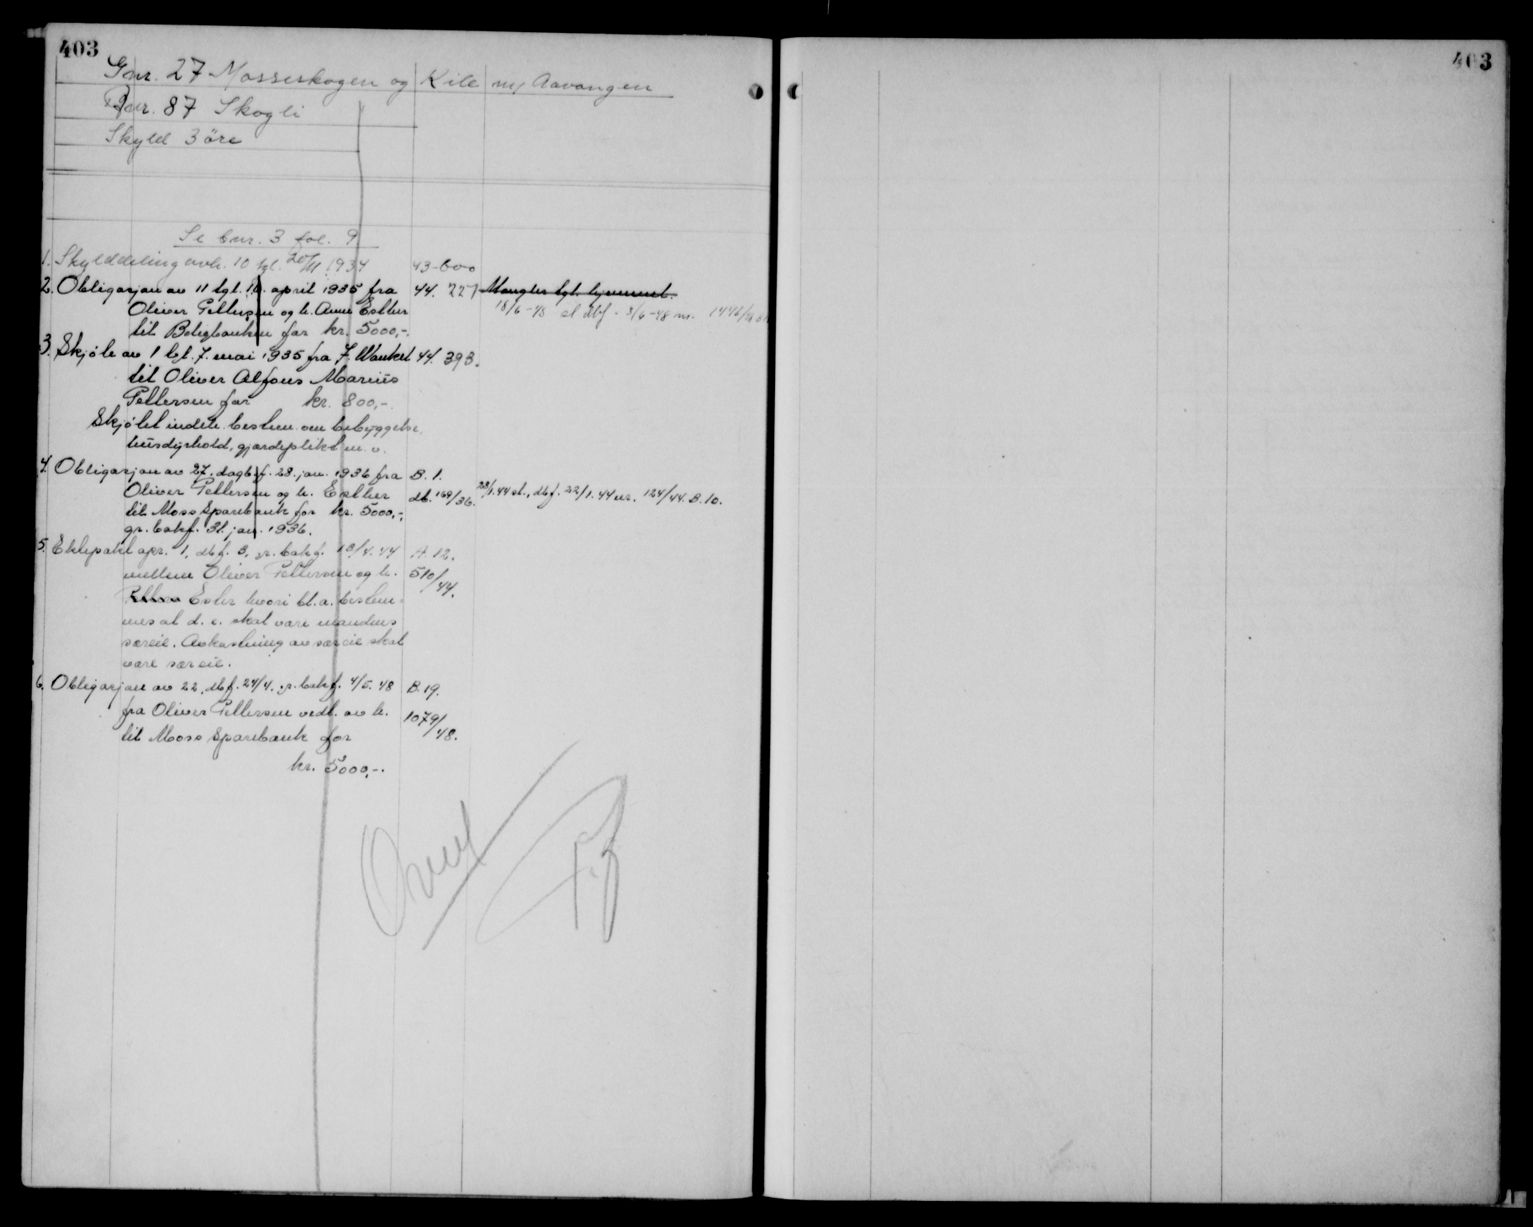 403
Gnr. 27 Mosseskogen og Kile m/ Aavangen
Bnr. 87 Skogli
Skyld 3 öre
Se bnr. 3 fol. 9
1. Skylddeling avh. 10 tgl. 20/11 1934 43-600
2. Obligasjon av 11 tgl. 12. april 1935 fra 44. 227 Mangler tgl. hjemmel.
Oliver Pettersen og h. Anna Esther 18/6-48 sl dbf. 8/6-48 nr.
til Boligbanken for kr. 5000,-.
3. Skjøte av 1 tgl. 7. mai 1935 fra J. Wankel 44. 393.
til Oliver Alfons Marius
Pettersen for kr. 800,-.
Skjøtet indeh. bestem. om bebyggelse,
husdyrhold, gjærdeplikt m. v.
4. Obligasjon av 27. dagb.f. 28. jan. 1936 fra B. 1.
Oliver Pettersen og h. Esther db. 169/36. 28/1.44 sl., dbf. 22/1.44 nr. 124/44. B. 10.
til Moss Sparebank for kr. 5000,-,
gr. bokf. 31. jan. 1936.
5. Ektepakt apr. 1, dbf. 3, gr. bokf. 13/4. 44 A. 12.
mellem Oliver Pettersen og h. 510/44.
Esther hvori bl. a. bestem-
mes at d. e. skal være mandens
særeie. Avkastning av særeie skal
være særeie.
6. Obligasjon av 22, dbf. 24/4, gr. bokf. 4/5. 48 B. 19.
fra Oliver Pettersen vedt. av h. 1079/48.
til Moss Sparebank for
kr. 5000,-.
403